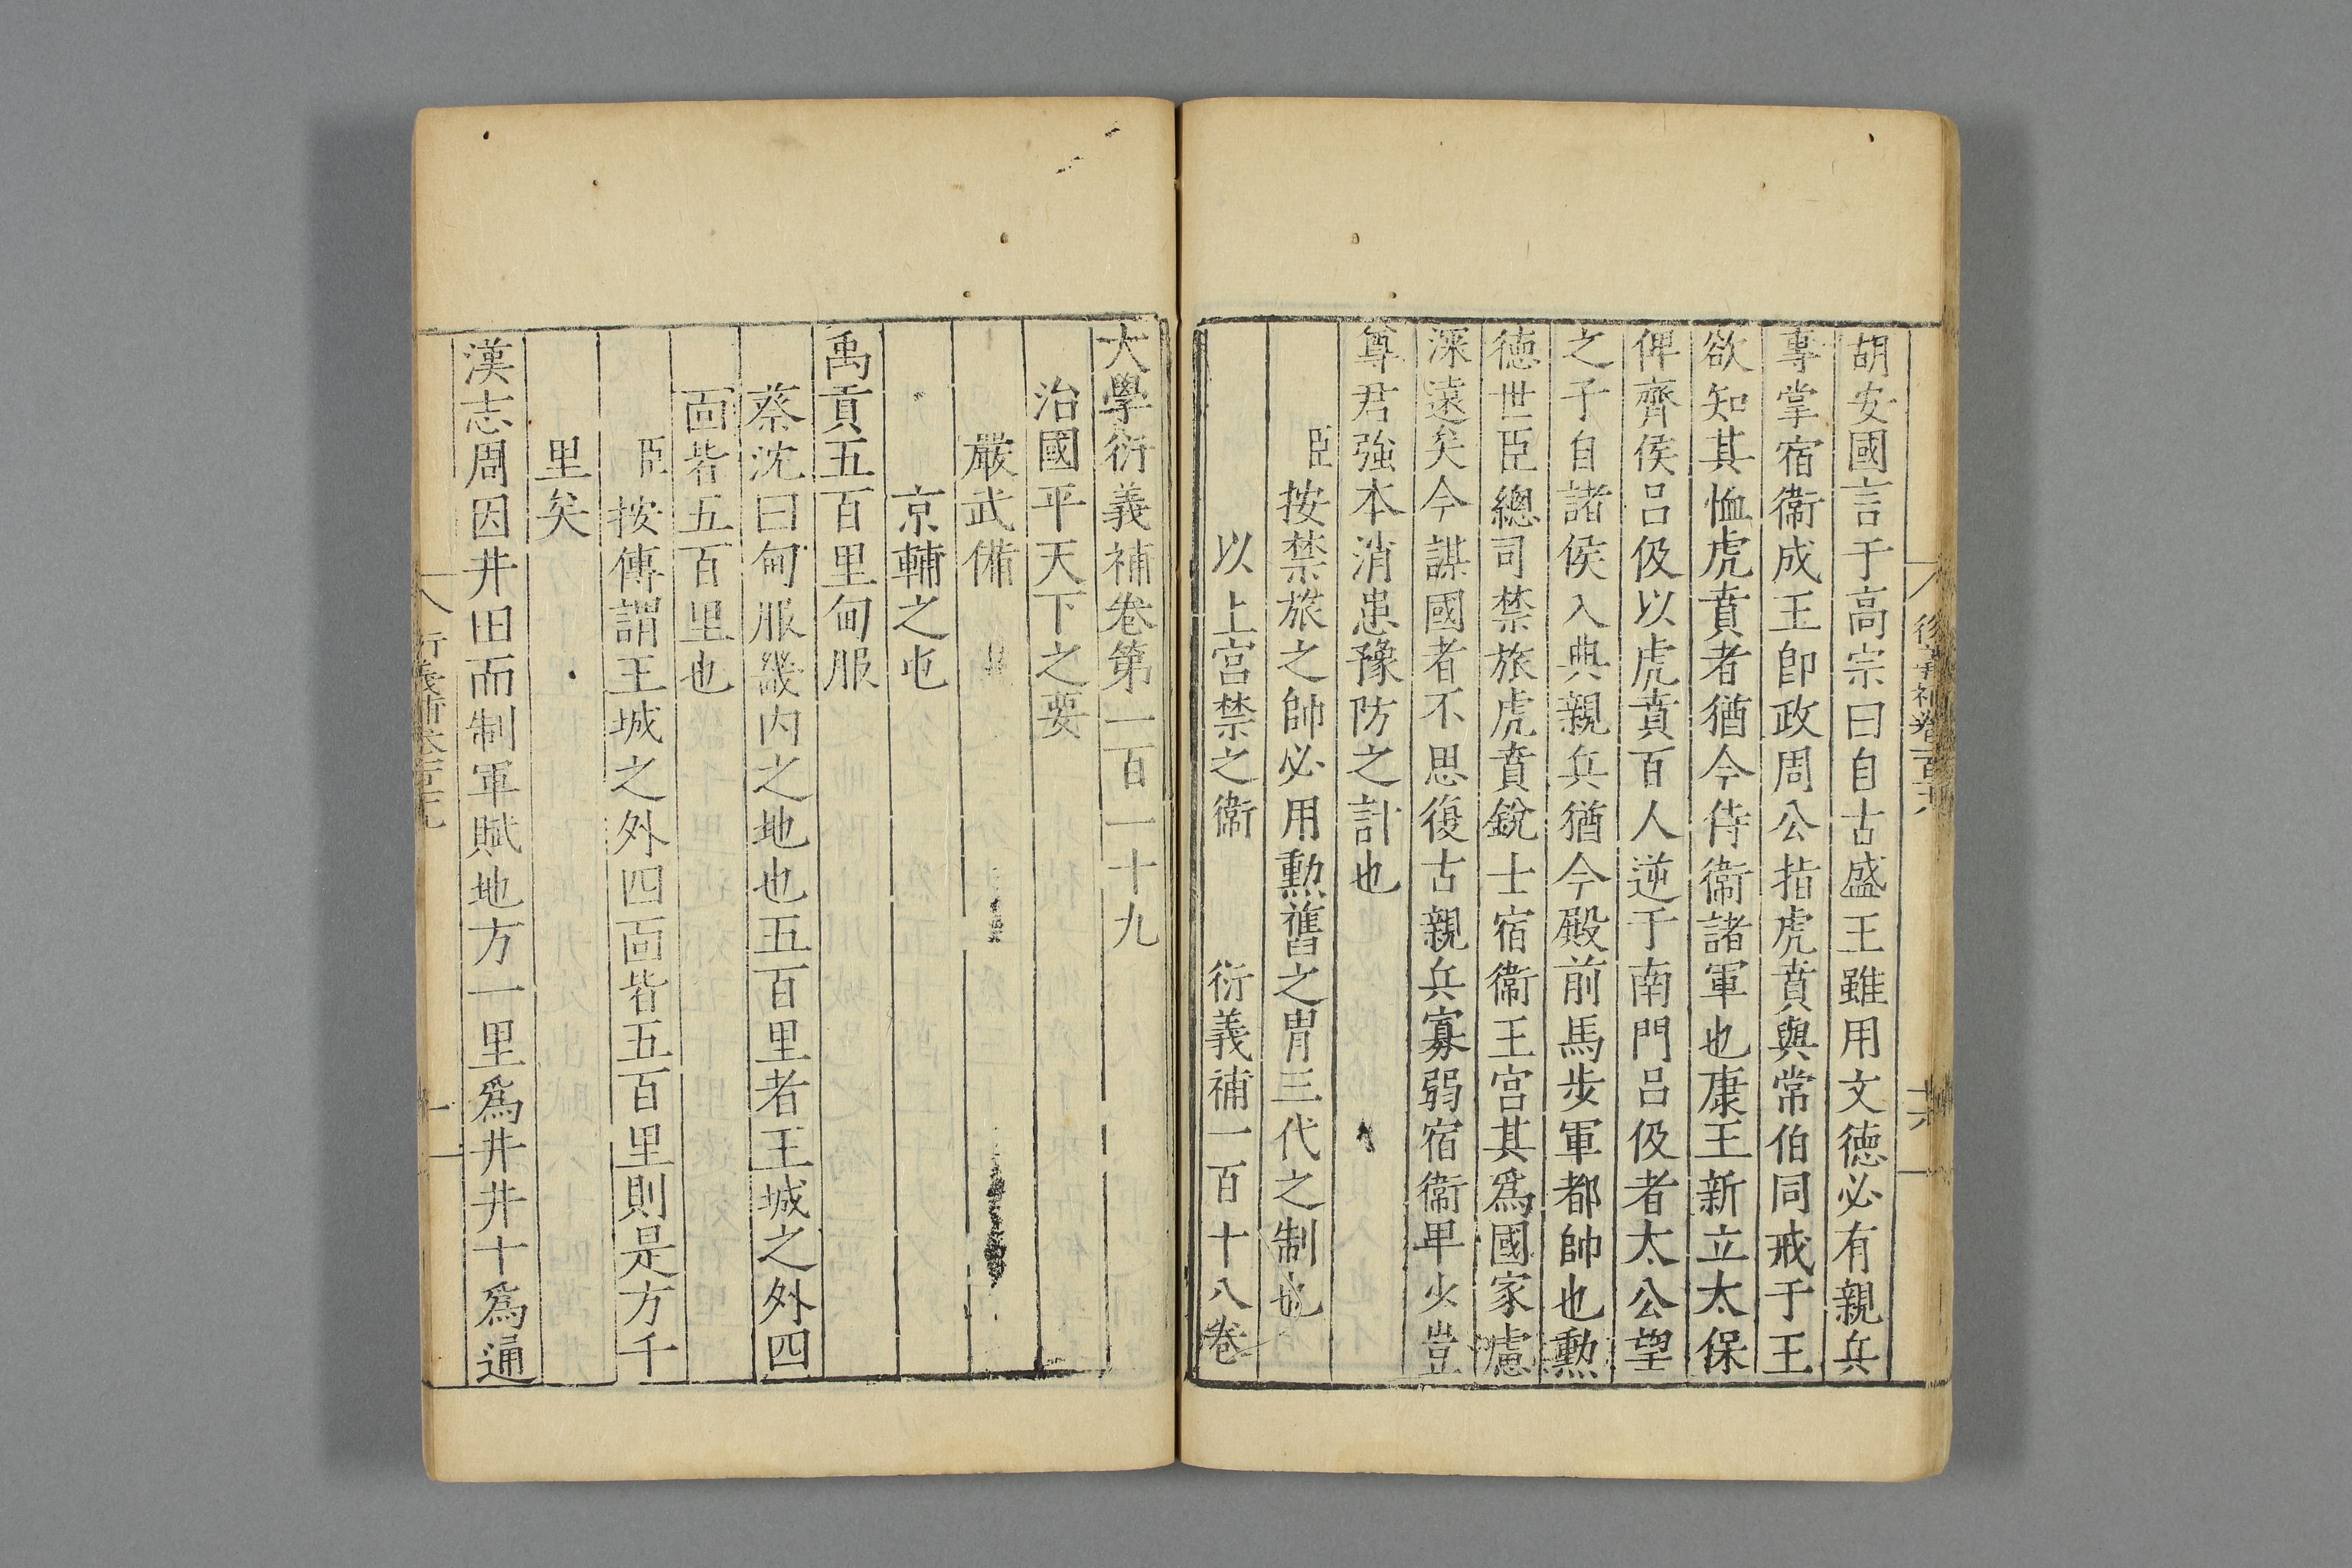 胡安國言于高宗曰自古盛王雖用文德必有親兵
專掌宿衛成王卽政周公指虎賁與常伯同戒于王
欲知其恤虎賁者猶今侍衛諸軍也康王新立太保
俾齊侯呂伋以虎賁百人逆于南門呂伋者太公望
之子自諸侯入典親兵猶今殿前馬步軍都帥也勲
德世臣總司禁旅虎賁銳士宿衛王宮其爲國家慮
深遠矣今謀國者不思復古親兵寡弱宿衛單少豈
尊君強本消患豫防之計也
臣按禁旅之帥必用勲舊之冑三代之制也
以上宮禁之衛 衍義補一百十八卷
大學衍義補卷第一百一十九
治國平天下之要
嚴武備
京輔之屯
禹貢五百里甸服
蔡沈曰甸服畿內之地也五百里者王城之外四
面皆五百里也
臣按傳謂王城之外四面皆五百里則是方千
里矣
漢志周因井田而制軍賦地方一里爲井井十爲通